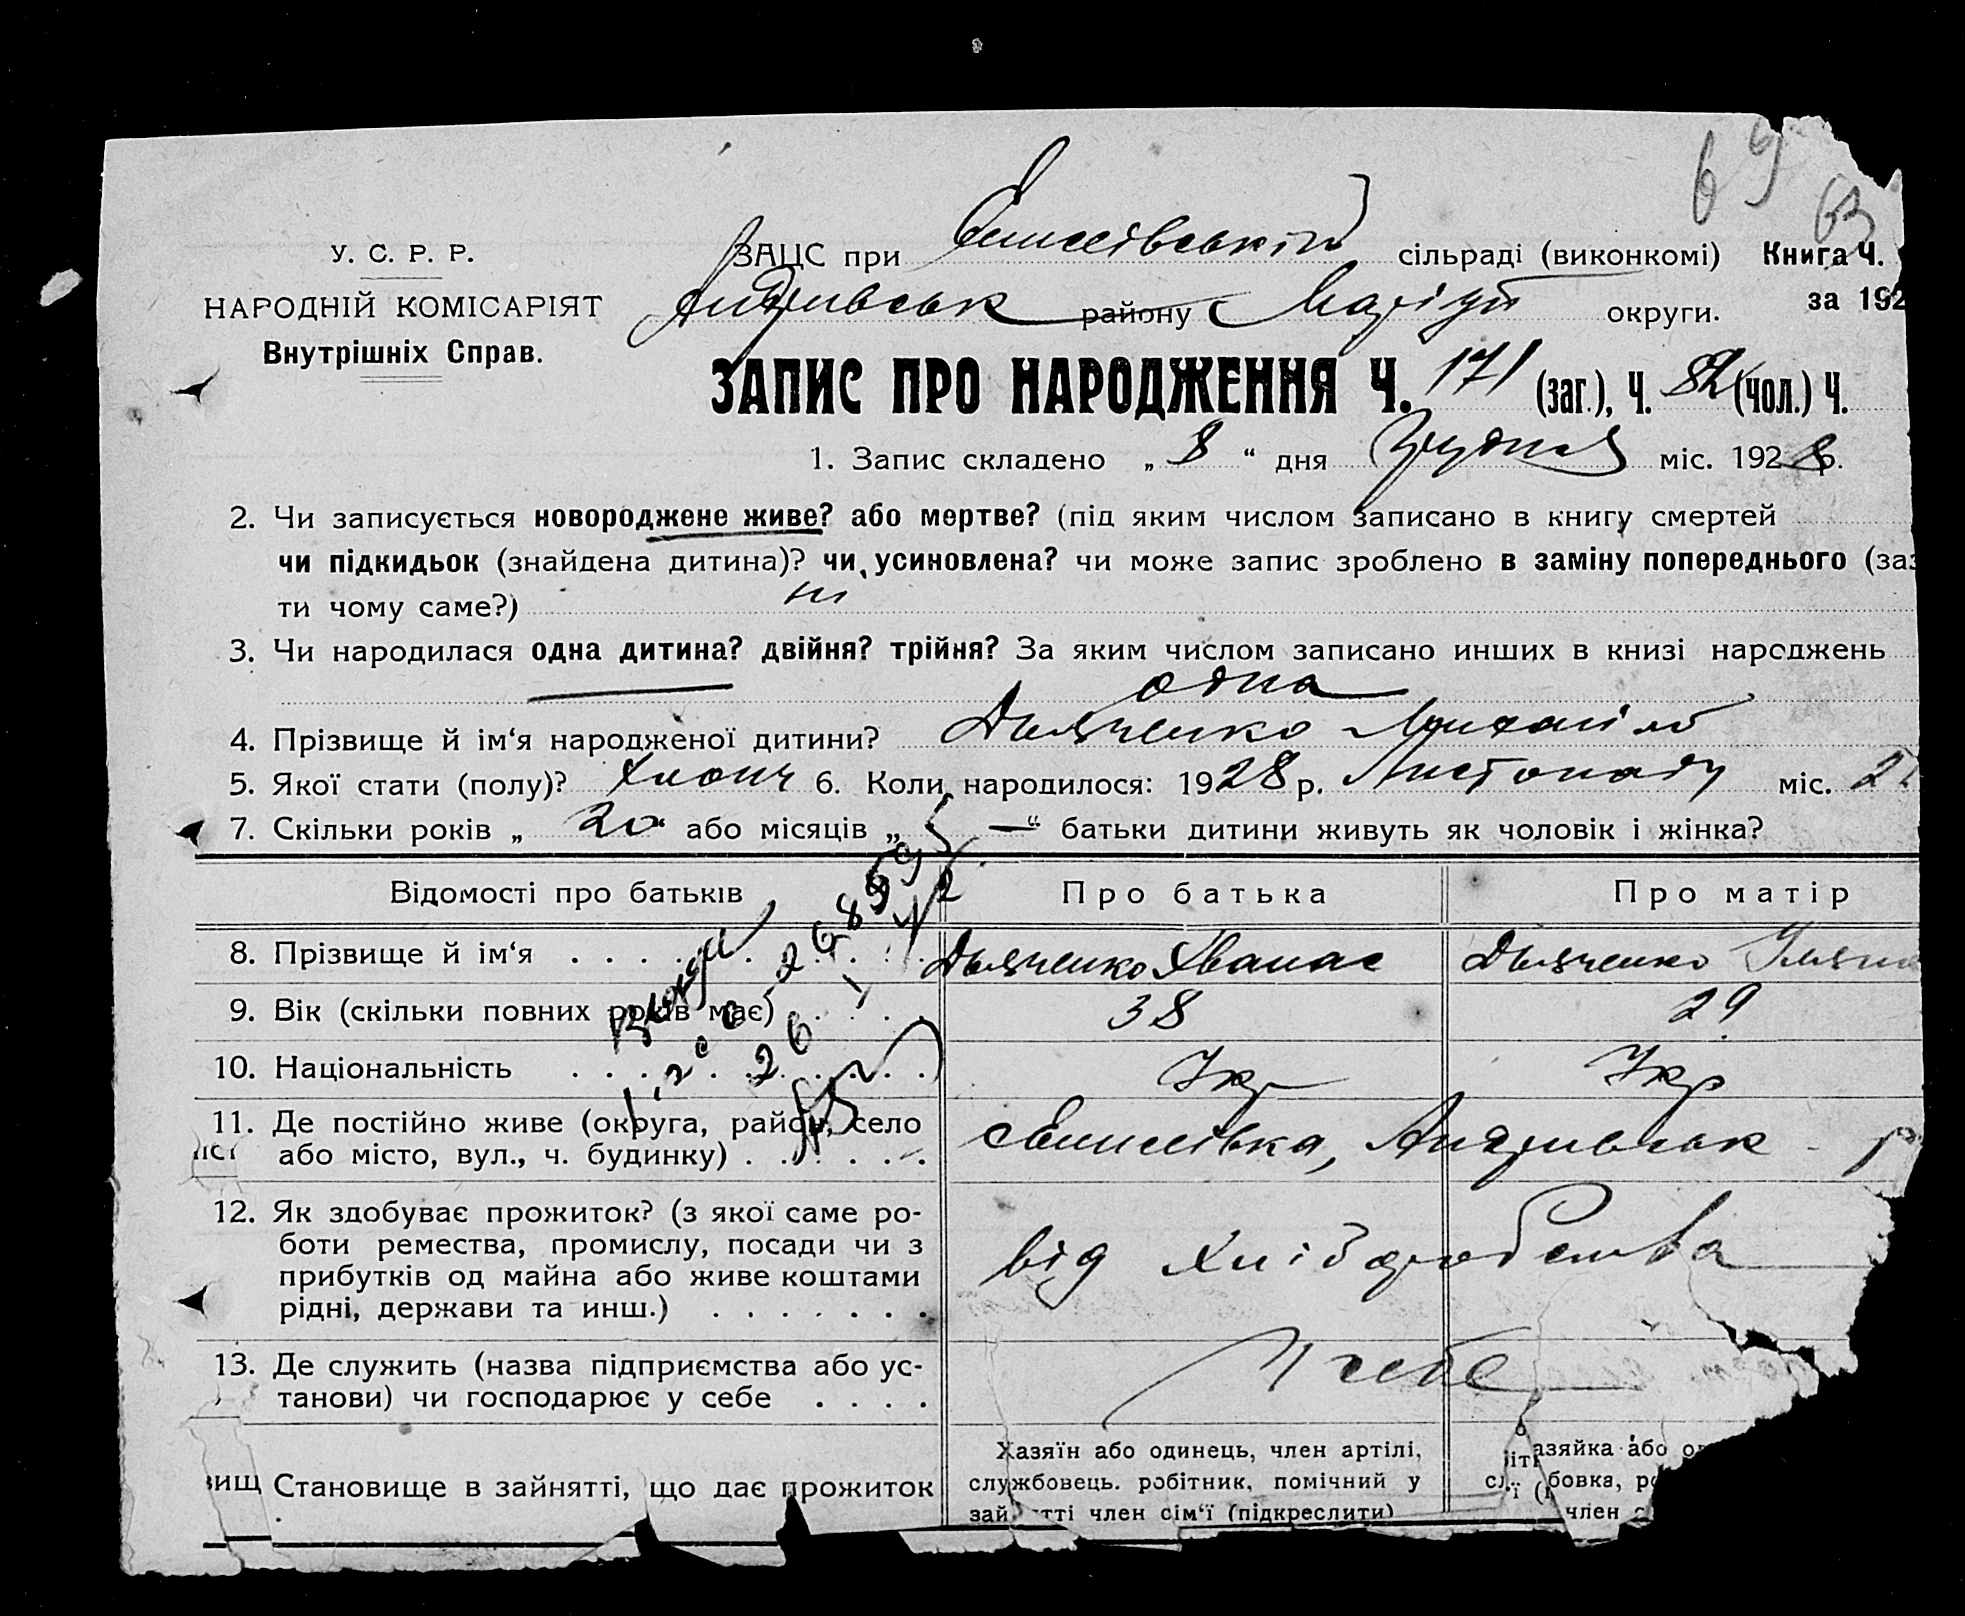 69
63
У. С. Р. Р.
НАРОДНІЙ КОМІСАРІЯТ
Внутрішніх Справ.
ЗАЦС при Єлисеївській сільраді (виконкомі) Книга Ч.
Андріївськ району Маріуп округи. за 192
ЗАПИС ПРО НАРОДЖЕННЯ Ч. 171 (заг.), Ч. 82 (чол.) Ч.
1. Запис складено „ 8 “ дня Грудня міс. 1928 р.
2. Чи записується новороджене живе? або мертве? (під яким числом записано в книгу смертей
чи підкидьок (знайдена дитина)? чи усиновлена? чи може запис зроблено в заміну попереднього (заз
ти чому саме?) ні
3. Чи народилася одна дитина? двійня? трійня? За яким числом записано инших в книзі народжень
одна
4. Прізвище й ім‘я народженої дитини? Дьяченко Михайло
5. Якої стати (полу)? хлопч 6. Коли народилося: 1928 р. Листопаду міс. 2
7. Скільки років „ 20 або місяців „ — “ батьки дитини живуть як чоловік і жінка?
Відомості про батьків Про батька Про матір
8. Прізвище й ім‘я Дьяченко Хванас Дьяченко Уляна
9. Вік (скільки повних років має) 38 29
10. Національність Укр Укр
11. Де постійно живе (округа, район, село
або місто, вул., ч. будинку) Єлисеївка, Андріївськ - р
12. Як здобуває прожиток? (з якої саме ро-
боти ремества, промислу, посади чи з
прибутків од майна або живе коштами
рідні, держави та инш.) від хліборобства
13. Де служить (назва підприємства або ус-
танови) чи господарює у себе У себе
вищ Становище в зайнятті, що дає прожиток
Хазяїн або одинець, член артілі,
службовець. робітник, помічний у
зай тті член сім‘ї (підкреслити)
азяйка або о
бовка, р
член